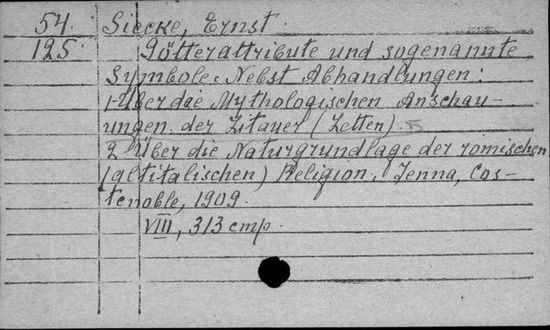 54. Siecke, Ernst.
125. Götterattribute und sogenannte
Symbole. Nebst Abhandlungen:
1. Über die Mythologischen Anschau-
ungen der Litauer (Letten).
2. Über die Naturgrundlage der römischen
(altitalischen) Religion. Jenna, Cos-
tenoble, 1909.
VIII, 313 cmp.